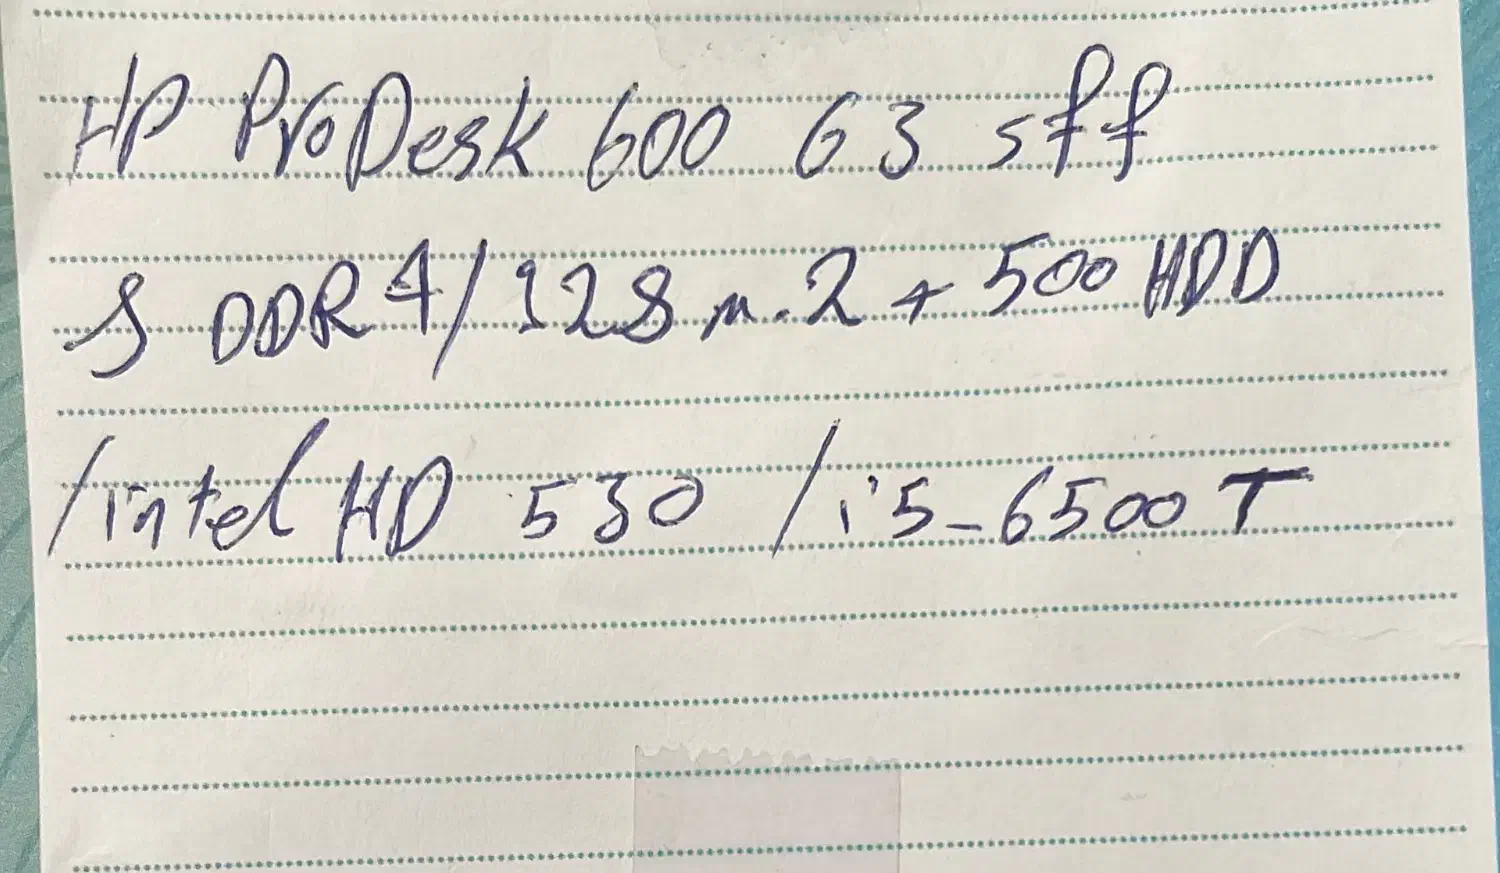 HP ProDesk 600 G3 sff
8 DDR4/128 m.2 + 500 HDD
/intel HD 530 /i5-6500T